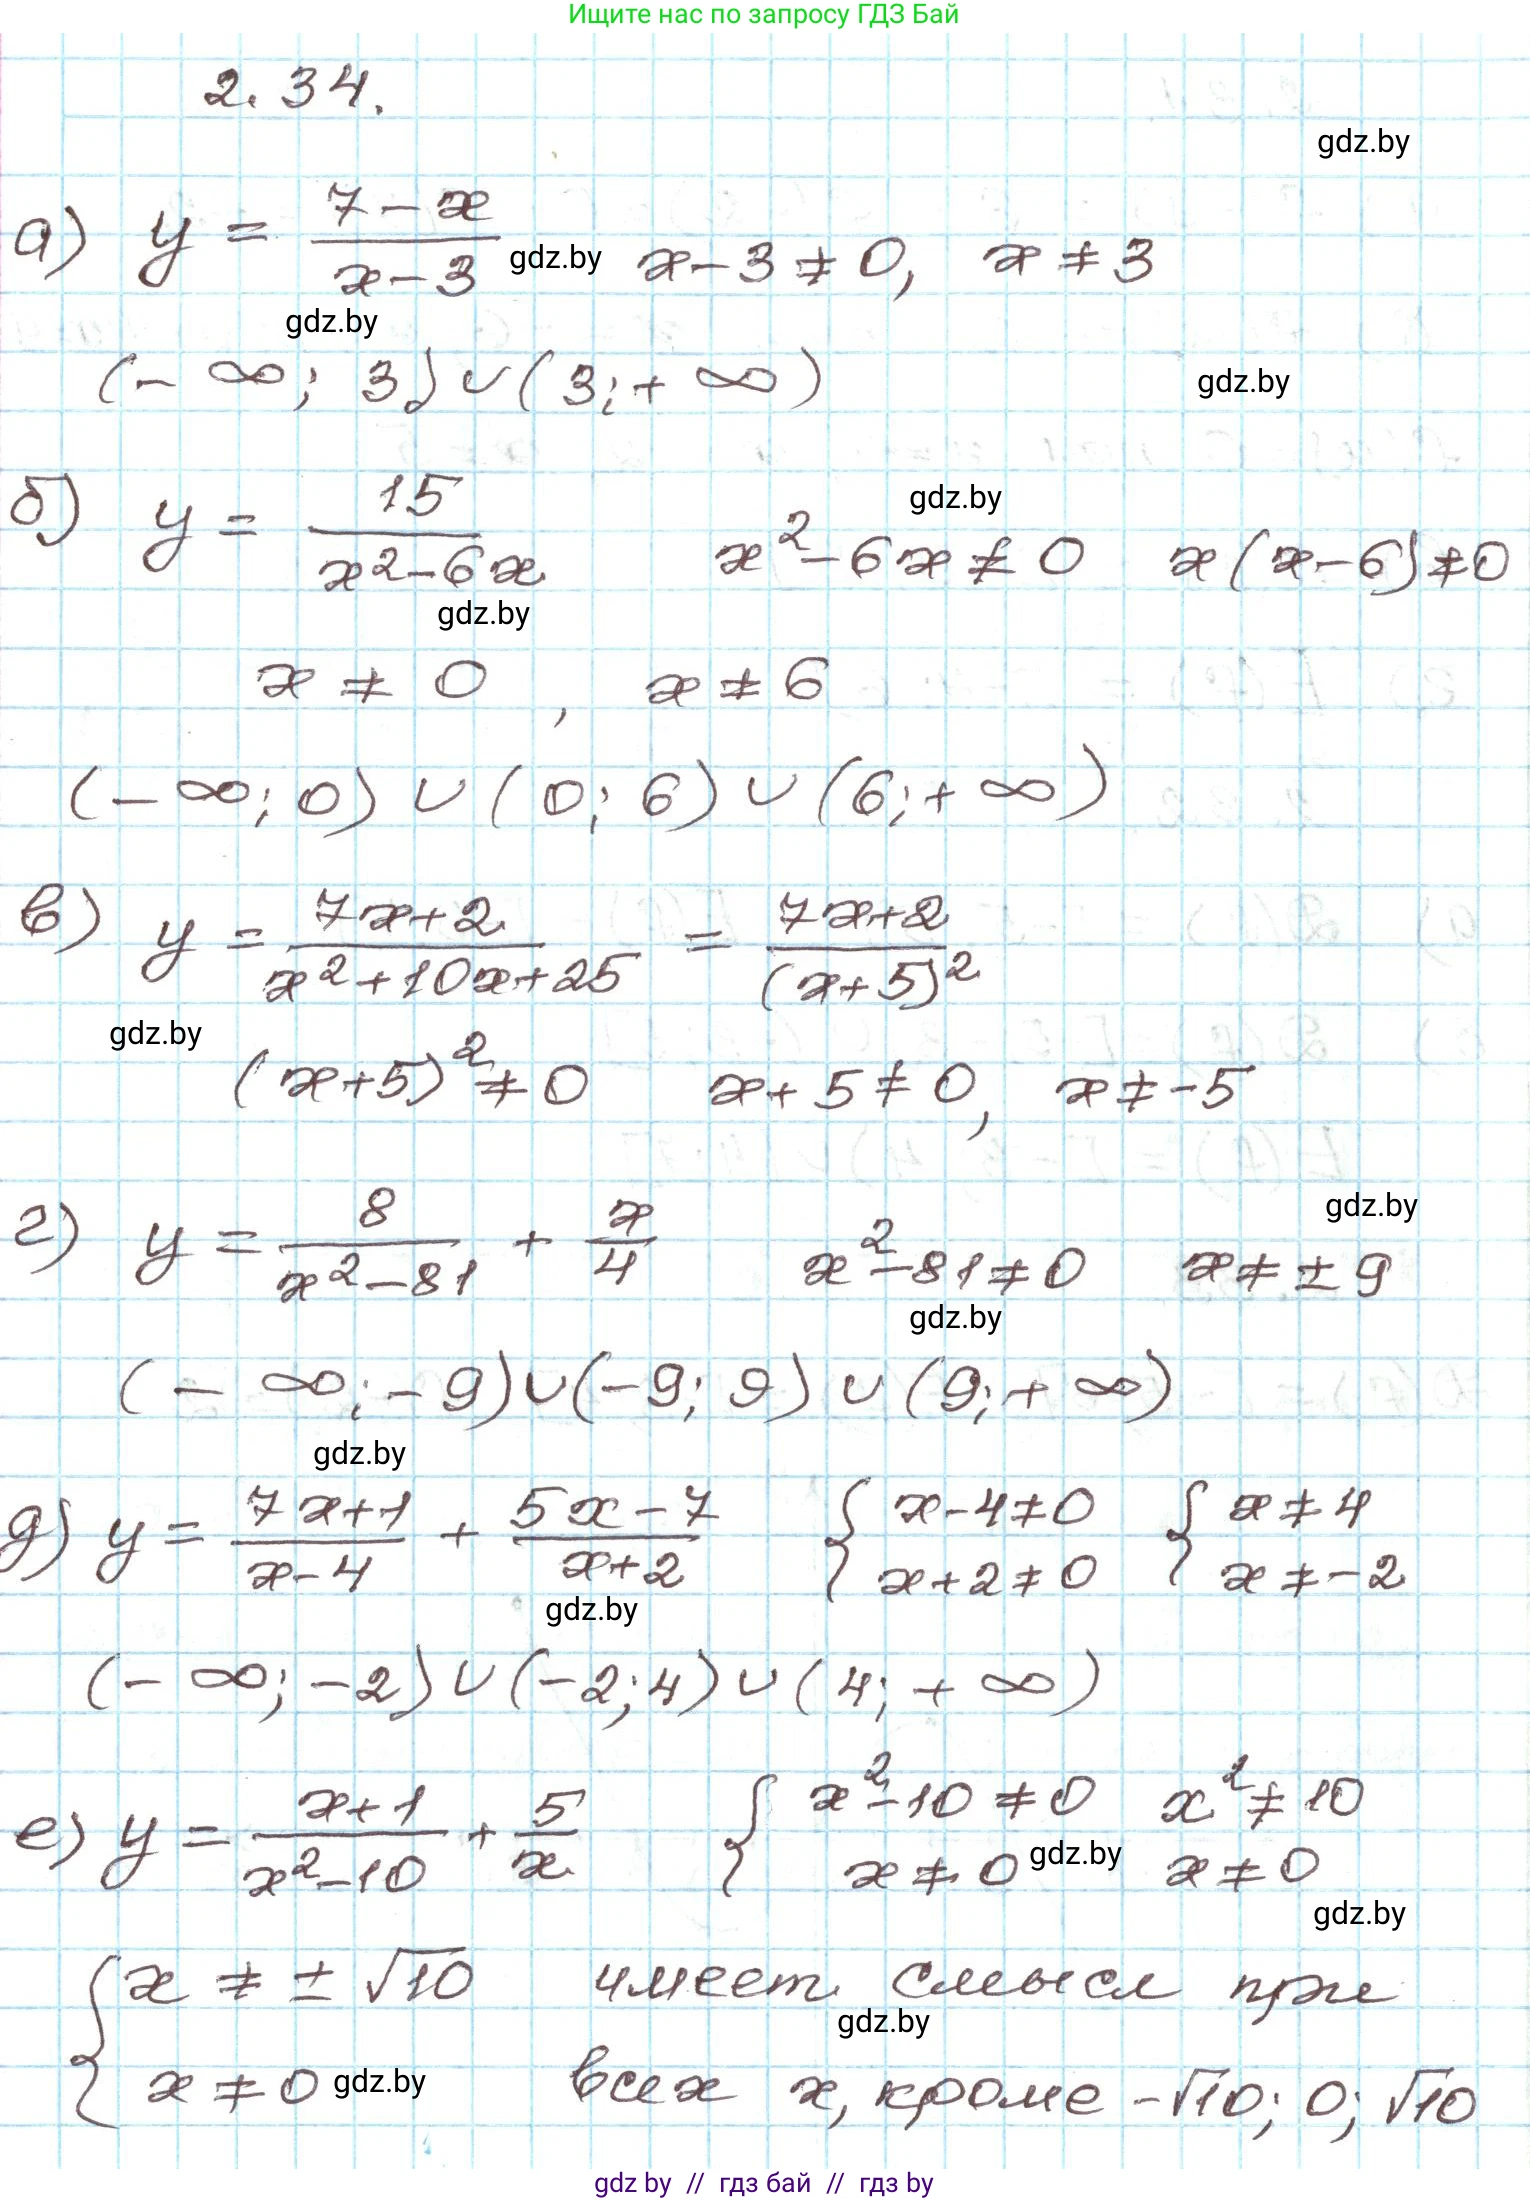 Ищите нас по запросу ГДЗ Бай
2.34.
gdz.by
а) y = (7-x)/(x-3) gdz.by x-3≠0, x≠3
gdz.by
(-∞; 3)∪(3;+∞) gdz.by
б) y = 15/(x²-6x) x²-6x≠0 x(x-6)≠0
gdz.by
gdz.by
x≠0, x≠6
(-∞;0)∪(0;6)∪(6;+∞)
в) y = (7x+2)/(x²+10x+25) = (7x+2)/(x+5)²
gdz.by
(x+5)²≠0 x+5≠0, x≠-5
gdz.by
г) y = 8/(x²-81) + x/4 x²-81≠0 x≠±9
gdz.by
(-∞;-9)∪(-9;9)∪(9;+∞)
gdz.by
д) y = (7x+1)/(x-4) + (5x-7)/(x+2) { x-4≠0 { x≠4
x+2≠0 x≠-2
gdz.by
(-∞;-2)∪(-2;4)∪(4;+∞)
е) y = (x+1)/(x²-10) + 5/x { x²-10≠0 x²≠10
x≠0 gdz.by x≠0
gdz.by
{ x≠±√10 имеет смысл при
gdz.by
x≠0 gdz.by всех x, кроме -√10; 0; √10
gdz by // гдз бай // гдз by